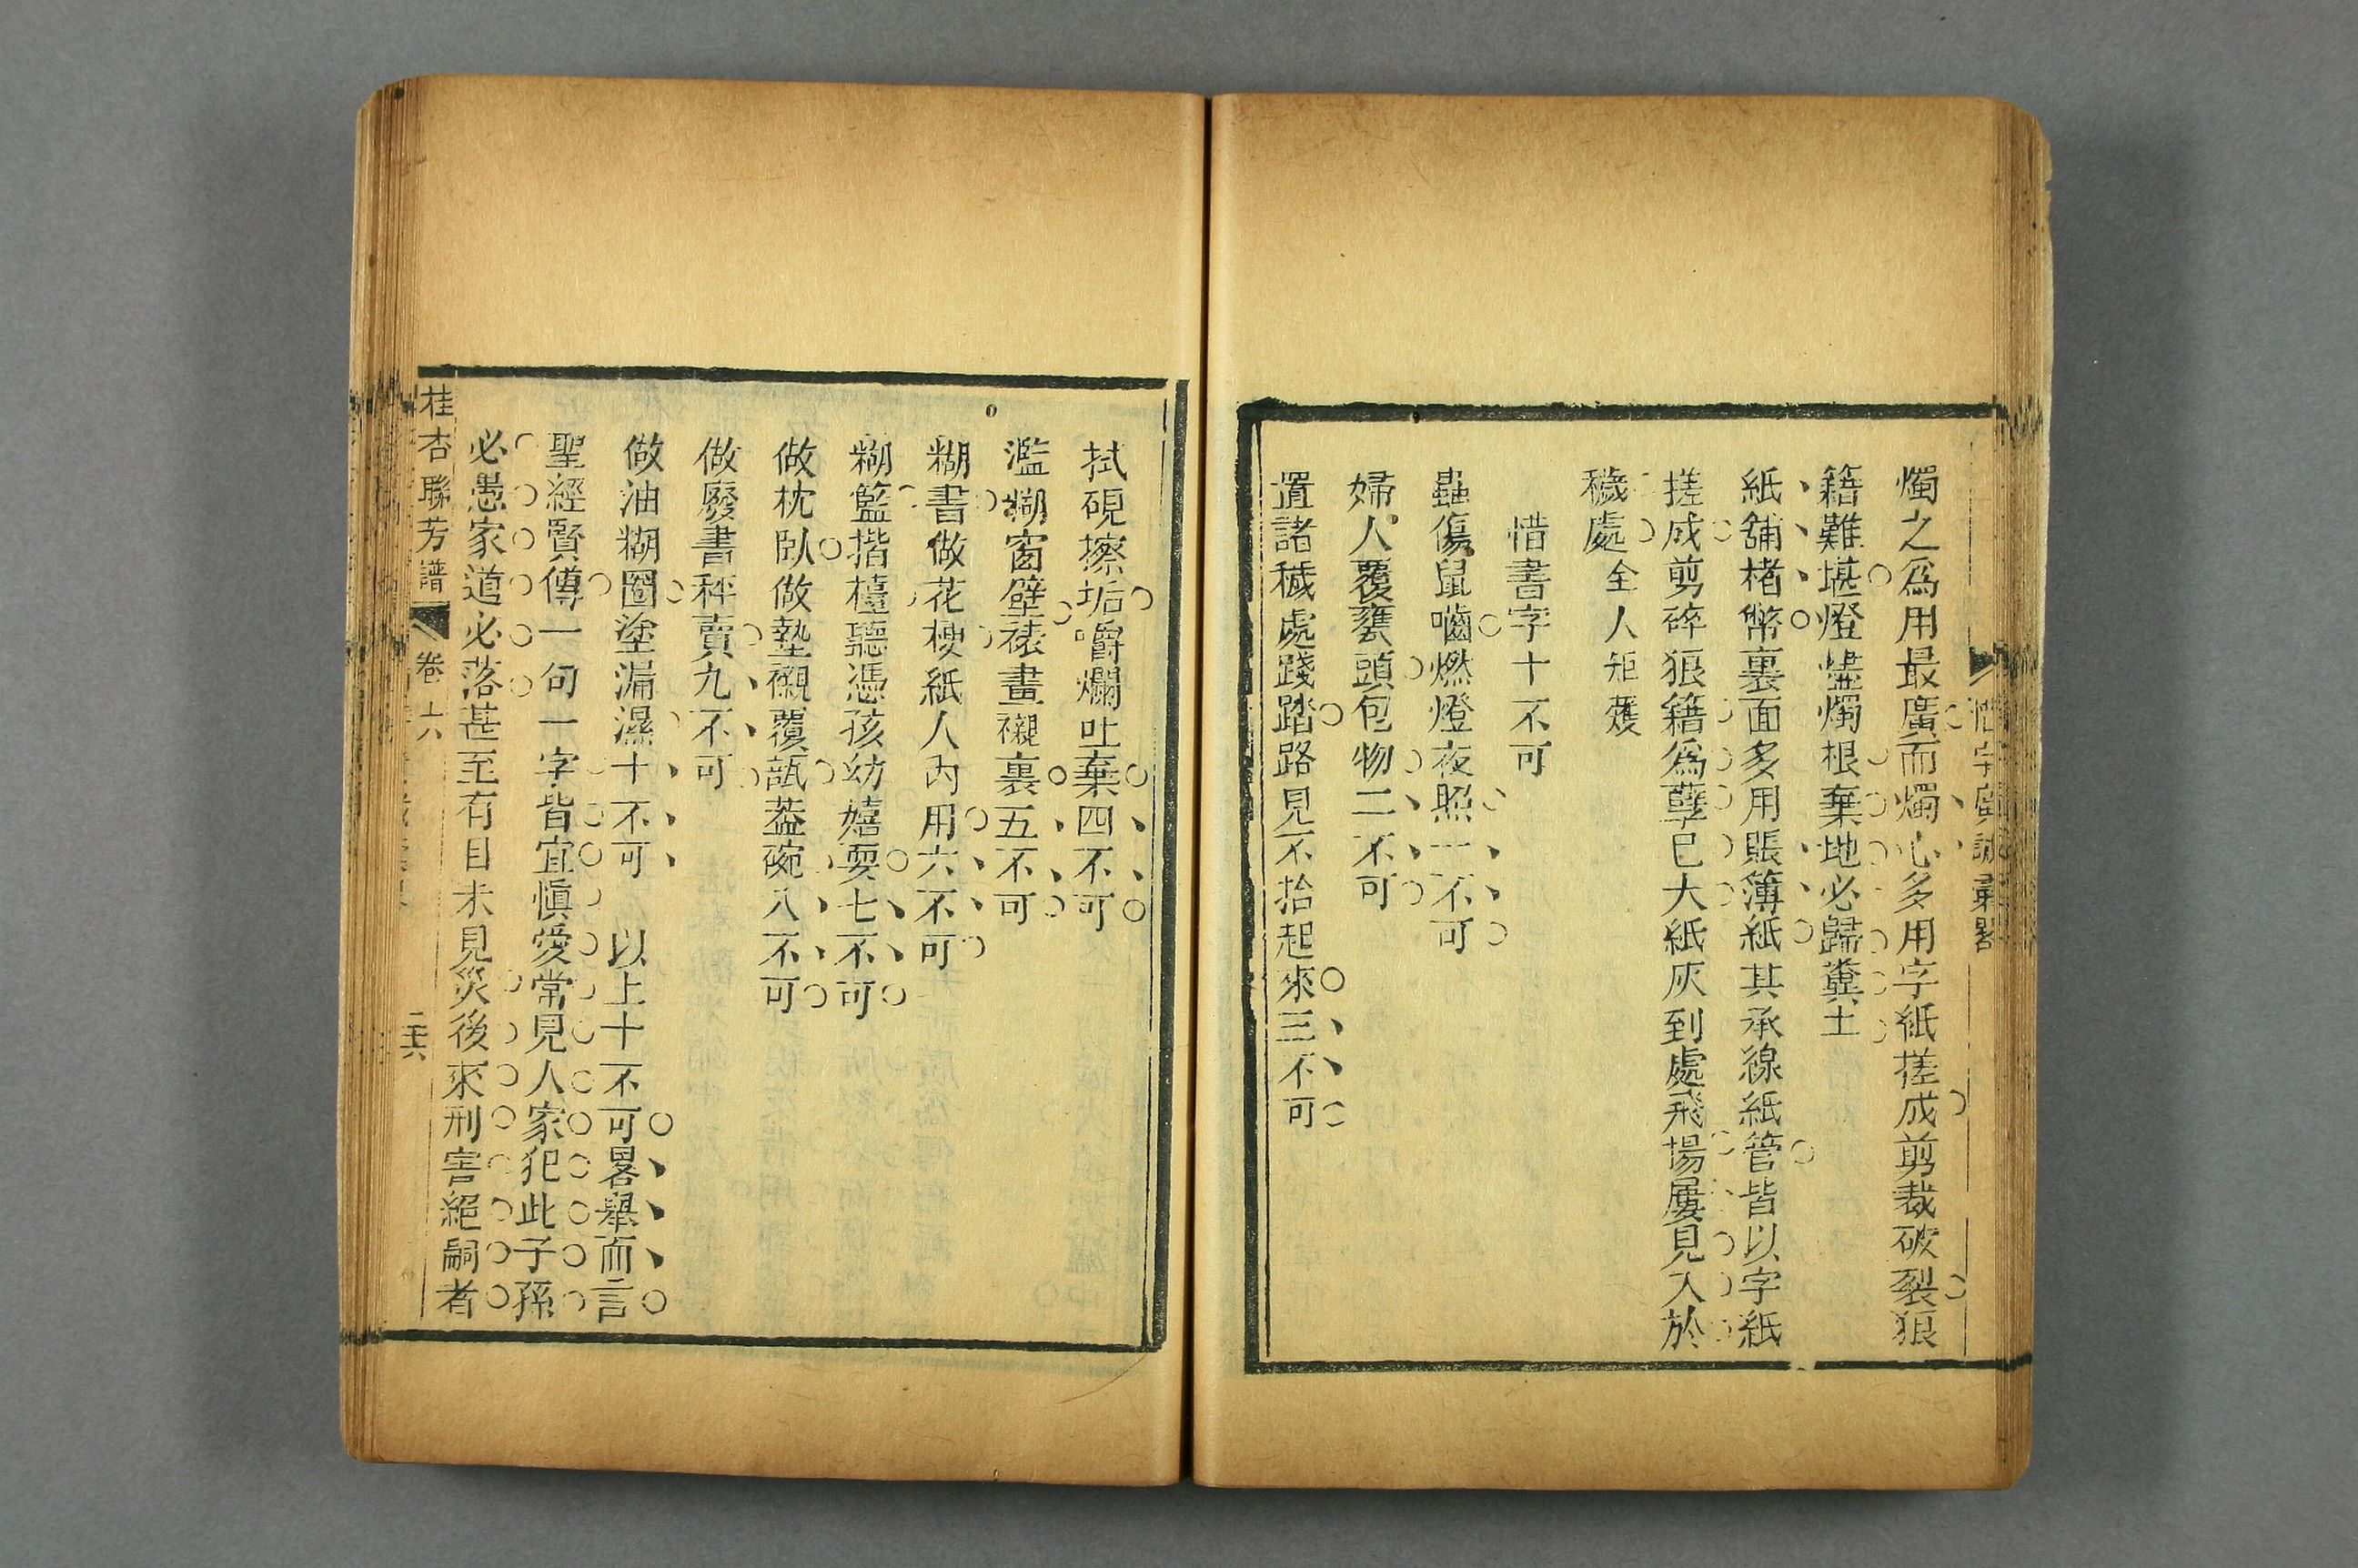 惜字廣誠彙畧
燭之爲用最廣而燭心多用字紙搓成剪裁破裂狼
籍難堪燈燼燭根棄地必歸糞土
紙舖楮幣裏面多用賬簿紙其承線紙管皆以字紙
搓成剪碎狼籍爲孽已大紙灰到處飛揚屢見入於
穢處全人矩蒦
惜書字十不可
蟲傷鼠嚙燃燈夜照一不可
婦人覆甕頭包物二不可
置諸穢處踐踏路見不拾起來三不可
拭硯擦垢嚼爛吐棄四不可
濫糊窗壁裱畫襯裏五不可
糊書做花梗紙人內用六不可
糊籃揩檯聽憑孩幼嬉耍七不可
做枕臥做墊襯覆瓿葢碗八不可
做廢書秤賣九不可
做油糊圈塗漏濕十不可 以上十不可畧舉而言
聖經賢傳一句一字皆宜愼愛常見人家犯此子孫
必愚家道必落甚至有目未見災後來刑害絕嗣者
桂杏聯芳譜 卷六 二十六